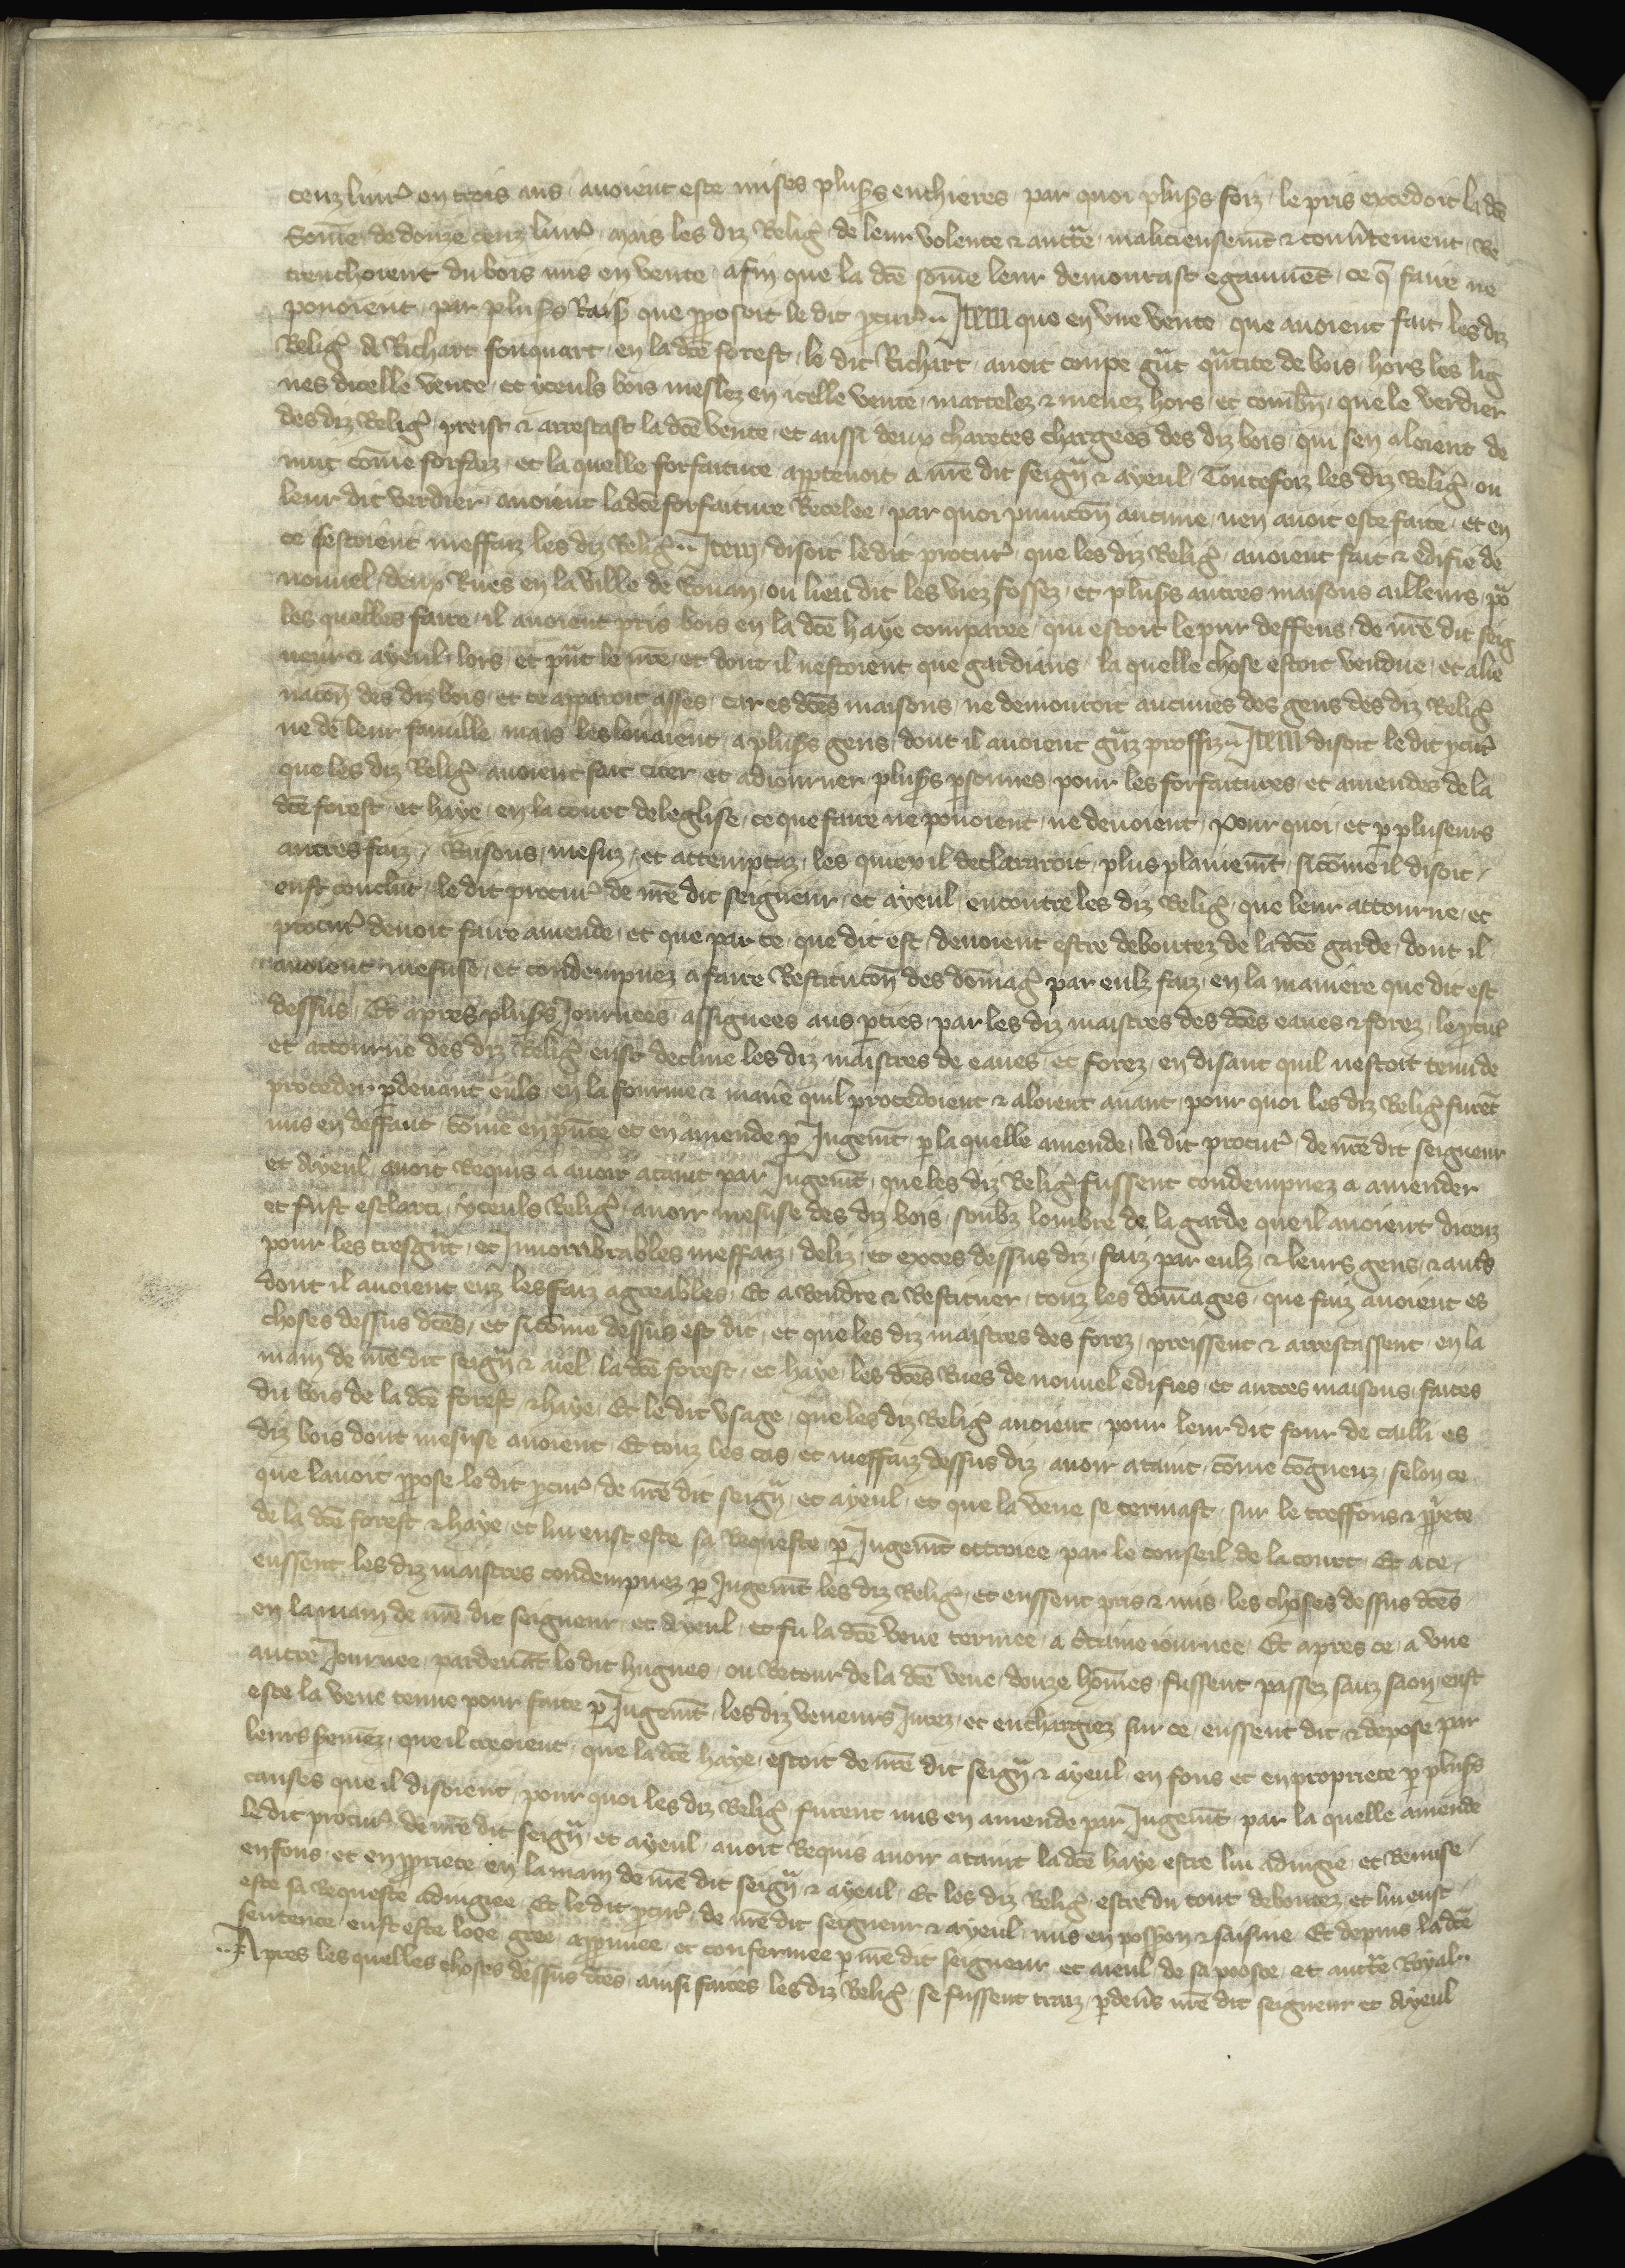 cenz livr᾽ en trois ans avoient este mises plus᾽s enchieres par quoi plus᾽s foiz le pris excedoit la dc̄e
Som̄e de douze cenz livr᾽ mais les diz Relig᾽ de leur volente ⁊ auctc̄e malicieusem̄t ⁊ couv᾽tement Re
trenchoient du bois mis en vente afin que la dc̄e som̄e leur demourast egaumēt ce q̄ faire ne
povoient par plus᾽s Rais᾽ que p̱posoit le dit p̱cur᾽ Item que en une vente que avoient fait les diz
Relig᾽ a Richart fouquart en la dc̄e forest le dit Richart avoit coupe gn̄t qn̄tite de bois hors les lig
nes dicelle vente et yceuls bois meslez en icelle vente martelez ⁊ menez hors et combn̄ que le verdier
des diz Relig᾽ preist ⁊ arrestast la dc̄e vente et aussi deux charetes chargees des diz bois qui sen aloient de
nuit com̄e forfaiz et la quelle forfaiture ap̱tenoit a nr̄e dit seign᾽ ⁊ ayeul Toutefoiz les diz Relig᾽ ou
leur dit verdier avoient la dc̄e forfaiture Recelee par quoi punicon̄ aucune nen avoit este faite et en
ce sestoient meffaiz les diz Relig᾽ Item disoit le dit procur᾽ que les diz Relig᾽ avoient fait ⁊ edifie de
nouvel deux Rues en la ville de Rouan ou lieu dit les viez fossez et plus᾽s autres maisons ailleurs po᾽
les quelles faire il avoient pris bois en la dc̄e haye comparee qui estoit le pur deffens de nr̄e dit seig
neur ⁊ ayeul lors et pn̄t le nr̄e et dont il nestoient que gardians la quelle chose estoit vendue et alie
nacon̄ des diz bois et ce apparoit asses car es dc̄es maisons ne demouroit aucunes des gens des diz Relig᾽
ne de leur famille mais les louoient a plus᾽s gens dont il avoient gn̄z proffiz Item disoit le dit p̱cur᾽
que les diz Relig᾽ avoient fait citer et adiourner plus᾽s p̱sonnes pour les forfaitures et amendes de la
dc̄e forest et haye en la court de leglise ce que faire ne povoient ne devoient Pour quoi et p̱ pluseurs
autres faiz Raisons mesuz et attemptaz les quiex il declairaroit plus plainem̄t si com̄e il disoit
eust conclut le dit procur᾽ de nr̄e dit seigneur et ayeul encontre les diz Relig᾽ que leur attourne et
procur᾽ devoit faire amende et que par ce que dit est devoient estre deboutez de la dc̄e garde dont il
avoient mesuse et condempnez a faire Restitucon̄ des dom̄ag᾽ par eulz faiz en la maniere que dit est
dessus Et apres plus᾽s Journees assignees aus p̱ties par les diz maistres des dc̄es eaues ⁊ forez le p̱cur᾽
et attourne des diz Relig᾽ eust decline les diz maistres de eaues et forez en disant quil nestoit tenu de
proceder p̱devant euls en la fourme ⁊ manr̄e quil procedoient ⁊ aloient avant pour quoi les diz Relig᾽ furēt
mis en deffaut com̄e en pn̄ce et en amende p̱ Jugem̄t p̱ la quelle amende le dit procur᾽ de nr̄e dit seigneur
et ayeul avoit Requis a avoir ataint par Jugem̄t que les diz Relig᾽ fussent condempnez a amender
et fust esclarci yceuls Relig᾽ avoir mesuse des diz bois soubz lombre de la garde que il avoient diceuz
pour les tresgn̄t et Innombrables meffaiz deliz et exces dessus diz faiz par eulz ⁊ leurs gens ⁊ aut᾽s
dont il avoient euz les faiz agreables Et a Rendre ⁊ Restituer touz les dom̄ages que faiz avoient es
choses dessus dc̄es et si com̄e dessus est dit et que les diz maistres des forez preissent ⁊ arrestassent en la
main de nr̄e dit seign᾽ ⁊ aiel la dc̄e forest et haye les dc̄es Rues de nouvel edifies et autres maisons faites
du bois de la dc̄e forest ⁊ haye Et le dit usage que les diz Relig᾽ avoient pour leur dit four de cailli es
diz bois dont mesuse avoient Et touz les cas et meffaiz dessus diz avoir ataint com̄e cōgneuz selon ce
que lavoit p̱pose le dit p̱cur᾽ de nr̄e dit seign᾽ et ayeul et que la veue se termast sur le treffons ⁊ p̱p᾽ete
de la dc̄e forest ⁊ haye et lui eust este sa Requeste p̱ Jugem̄t ottroiee par le conseil de la court Et a ce
eussent les diz maistres condempnez p̱ Jugem̄t les diz Relig᾽ et eussent pris ⁊ mis les choses dessus dc̄es
en la main de nr̄e dit seigneur et ayeul et fu la dc̄e veue termee a c᾽taine iournee Et apres ce a une
autre Journee pardevāt le dit hugues ou Retour de la dc̄e veue douze hom̄es fussent passez sanz saon eust
este la veue tenue pour faite p̱ Jugem̄t les diz veneurs Jurez et enchargiez sur ce eussent dit ⁊ depose par
leurs sermēz que il creoient que la dc̄e haye estoit de nr̄e dit seign᾽ ⁊ ayeul en fons et en propriete p̱ plus᾽s
causes que il disoient pour quoi les diz Relig᾽ furent mis en amende par Jugem̄t par la quelle amende
le dit procur᾽ de nr̄e dit seign᾽ et ayeul avoit Requis avoir ataint la dc̄e haye estre lui adiugie et Remise
en fons et en p̱priete en la main de nr̄e dit seign᾽ ⁊ ayeul Et les diz Relig᾽ estre du tout deboutez et lui eust
este sa Requeste adiugiee Et le dit p̱cur᾽ de nr̄e dit seigneur ⁊ ayeul mis en poss᾽on ⁊ saisine Et depuis la dc̄e
sentence eust este loee gree app̱uuee et confermee p̱ nr̄e dit seigneur et aieul de sa pooste et auctc̄e Royal
Apres les quelles choses dessus dc̄es ainsi faites les diz Relig᾽ se fussent traiz p̱dev᾽s nr̄e dit seigneur et Ayeul